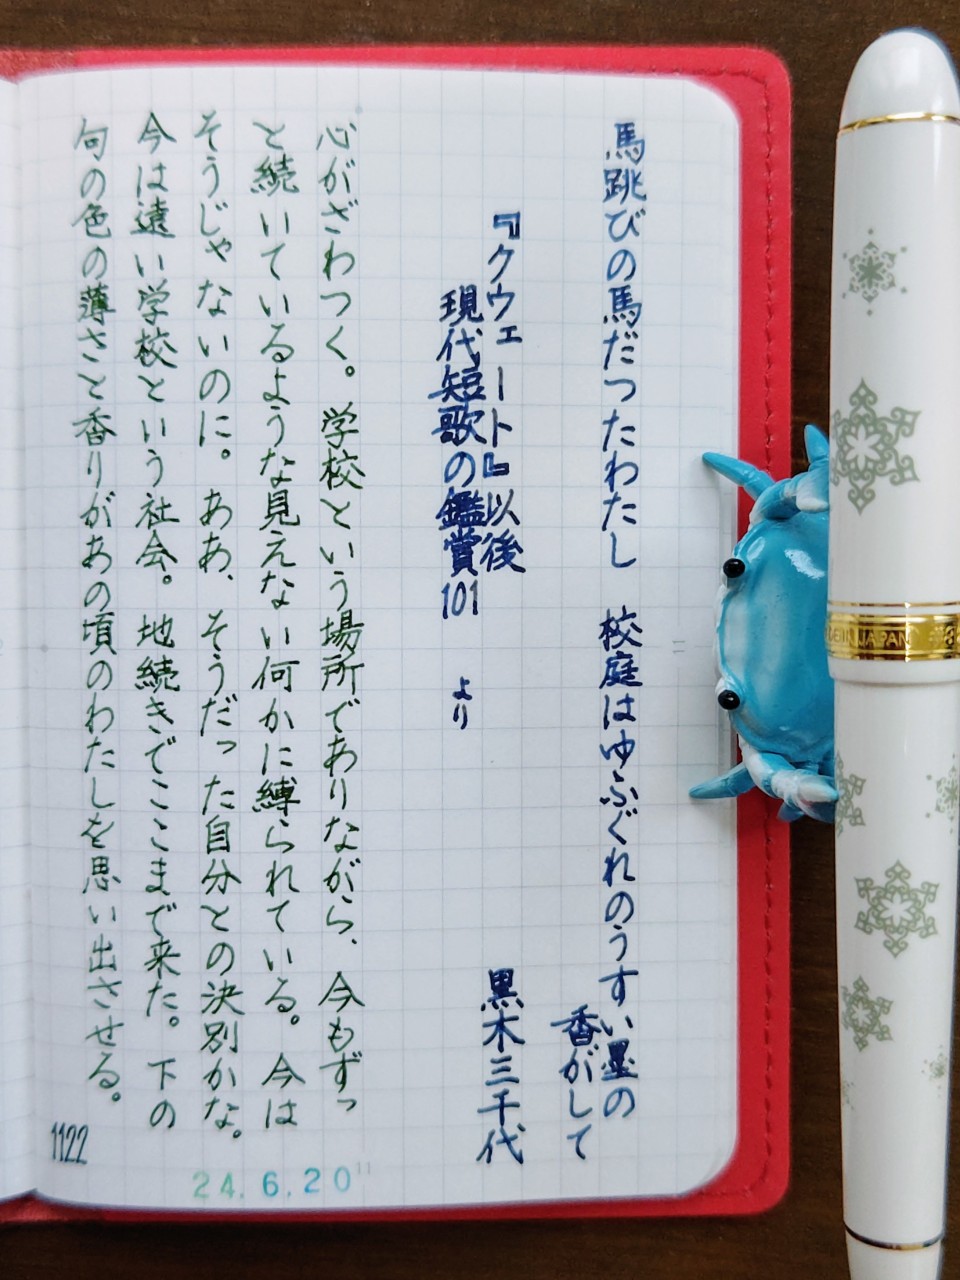 馬跳びの馬だつたわたし　校庭はゆふぐれのうすい墨の
香がして
『クウェート』以後
現代短歌の鑑賞101　より
黒木三千代
心がざわつく。学校という場所でありながら、今もずっ
と続いているような見えない何かに縛られている。今は
そうじゃないのに。ああ、そうだった自分との決別かな。
今は遠い学校という社会。地続きでここまで来た。下の
句の色の薄さと香りがあの頃のわたしを思い出させる。
1122
24.6.20
JAPAN